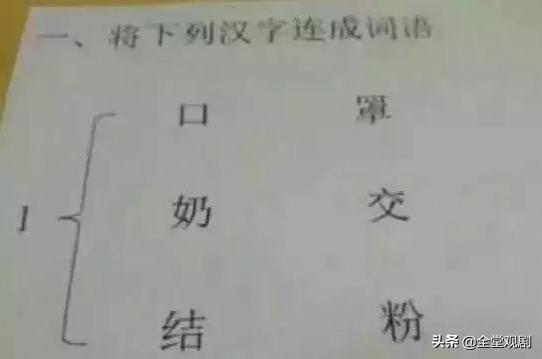 一、将下列汉字连成词语
口 罩
1 奶 交
结 粉
头条 @全堂观剧